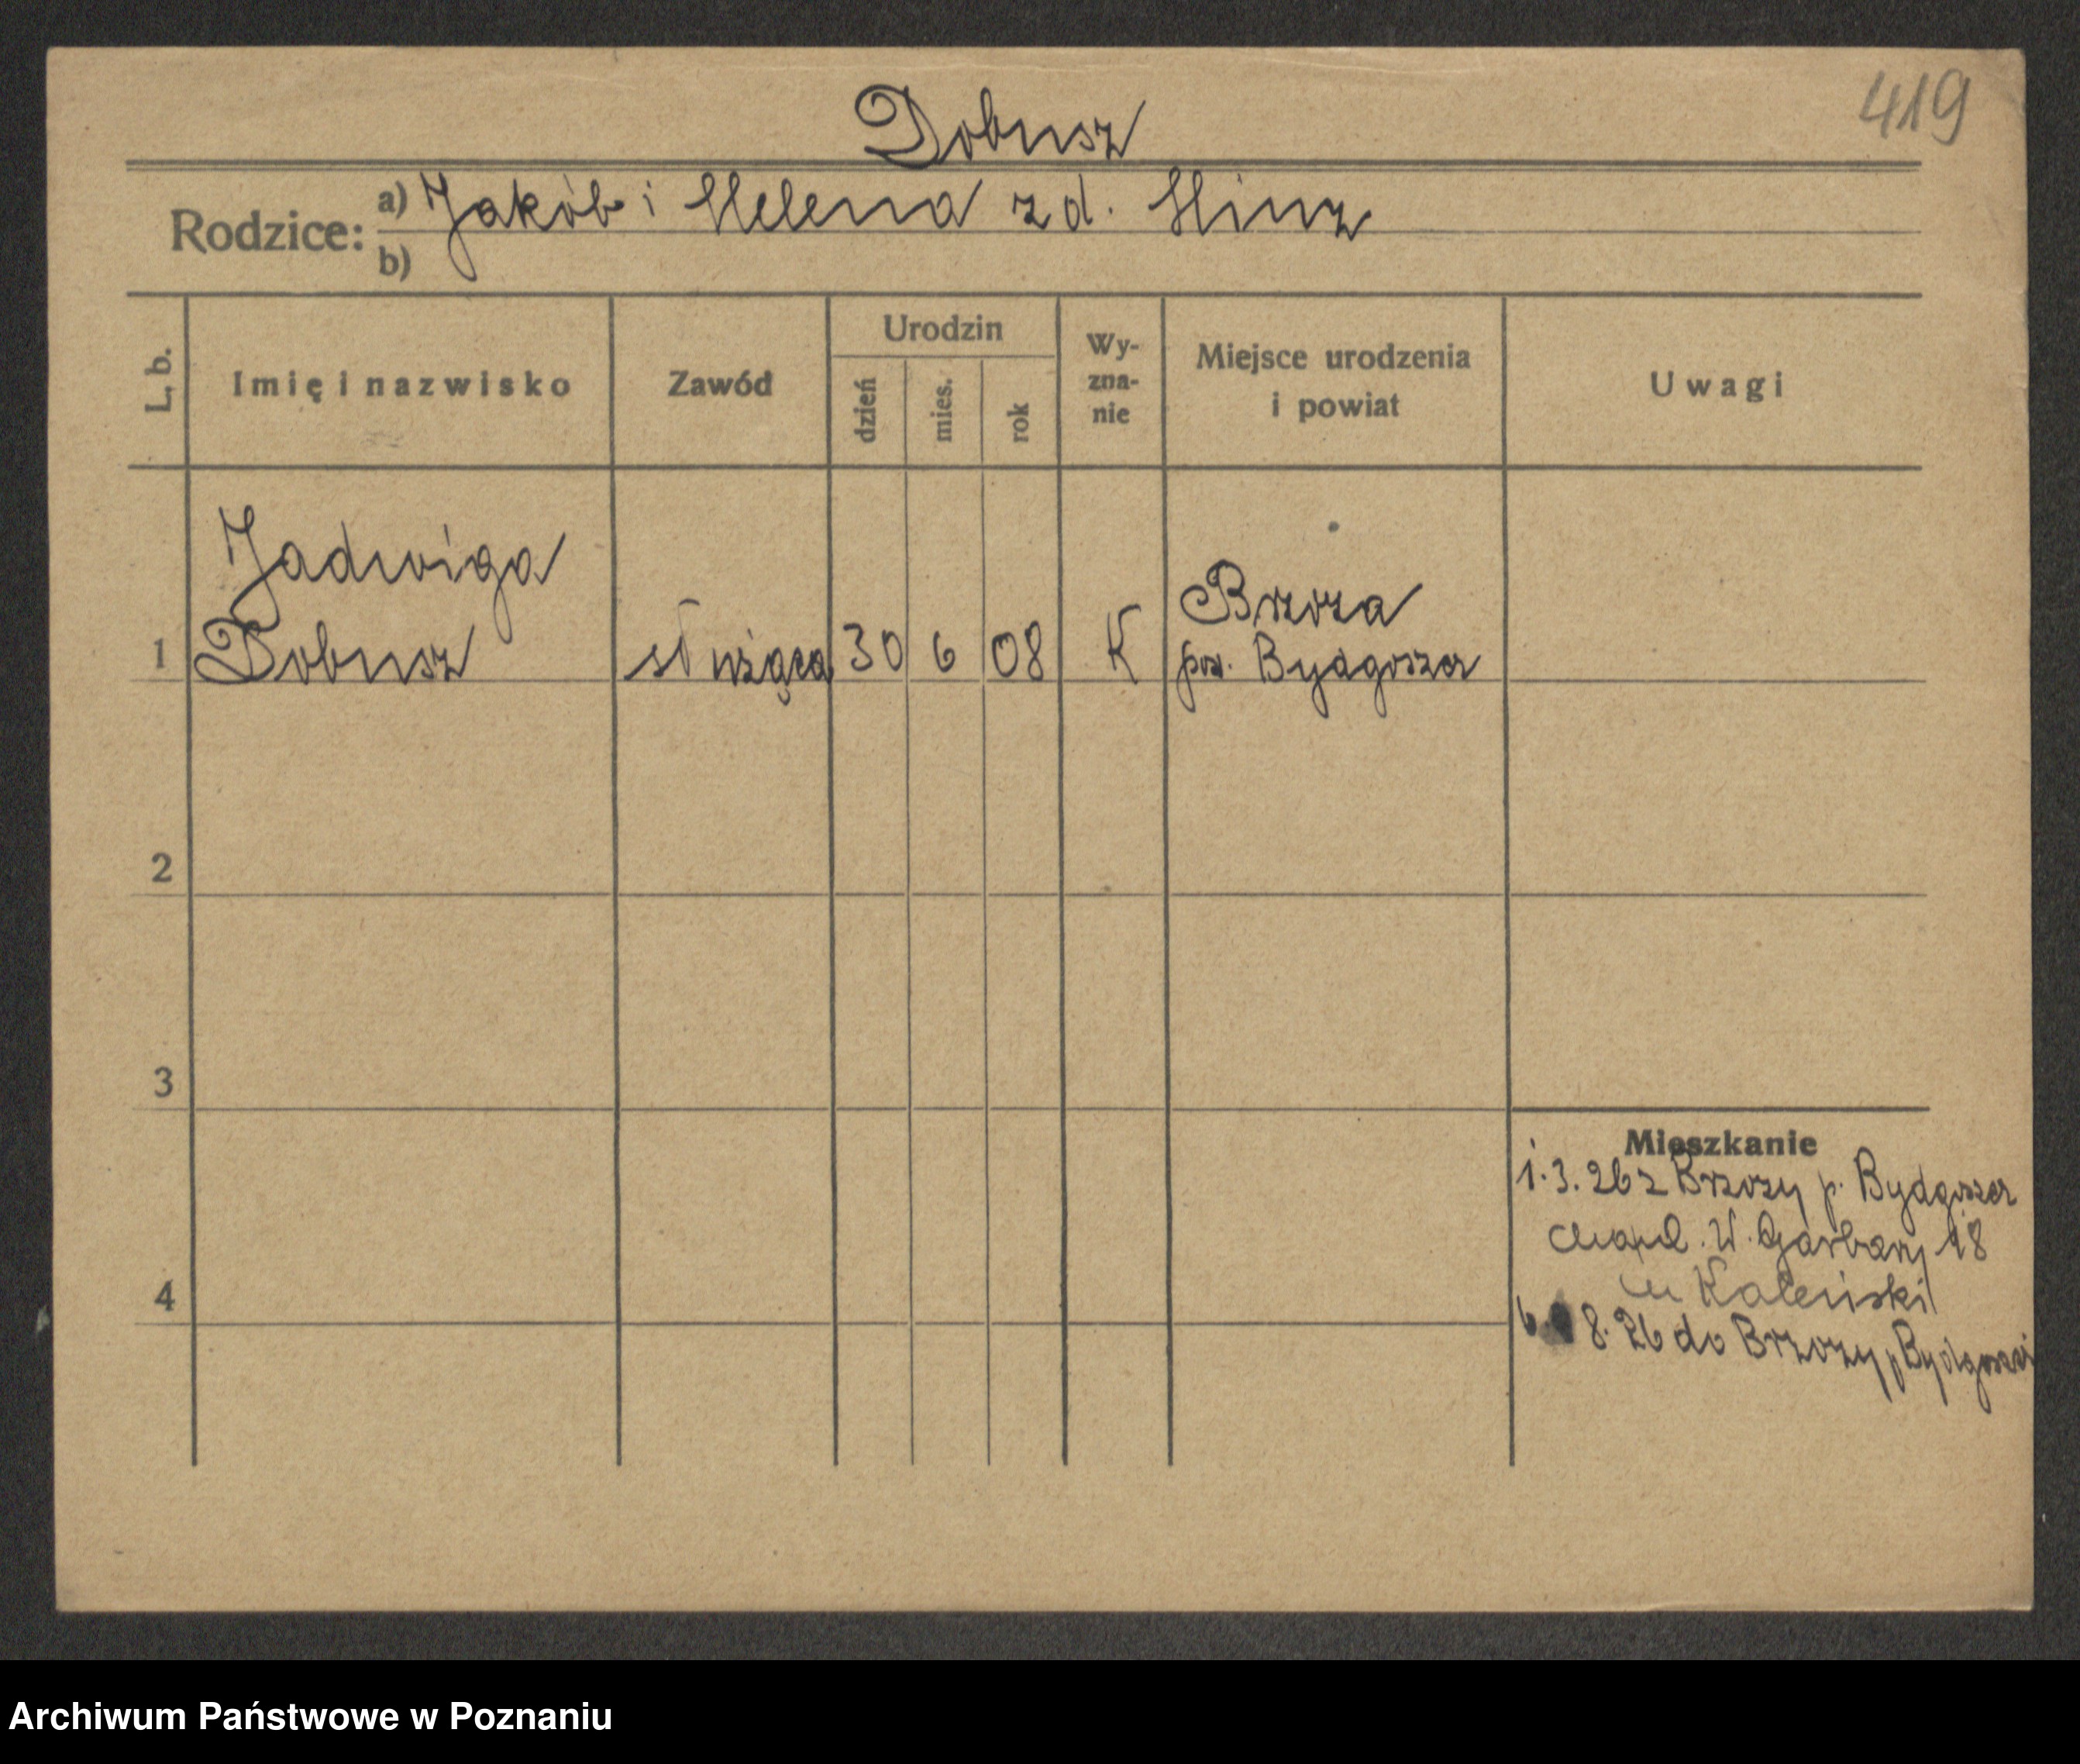 419
Dobusz
Rodzice: a) Jakób i Helena z d. Hinz
b)
L. b.
Imię i nazwisko
Zawód
Urodzin
dzień
mies.
rok
Wy-
zna-
nie
Miejsce urodzenia
i powiat
Uwagi
Jadwiga
1 Dobusz służąca 30 6 08 K
Brzoza
pow. Bydgoszcz
2
3
4
Mieszkanie
1.3.26 z Brzozy p. Bydgoszcz
W. Garbary 18
6. 8. 26 do Brzozy p Bydgoszcz
Archiwum Państwowe w Poznaniu